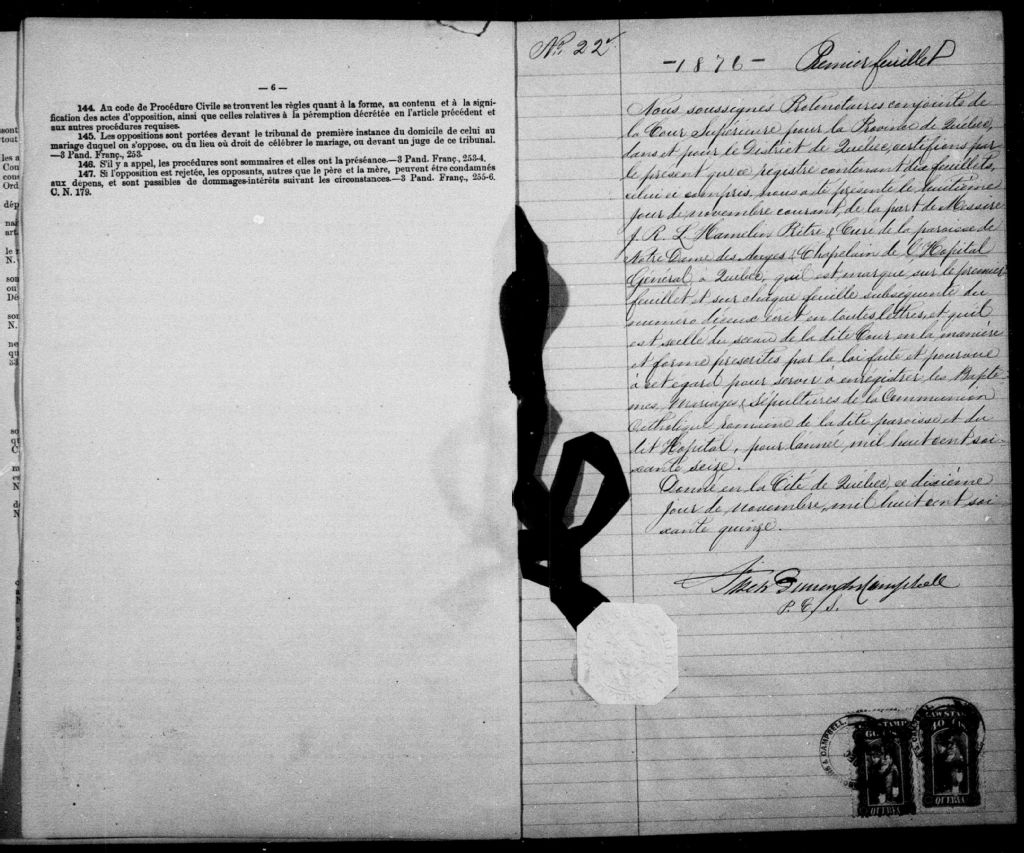 — 6 —
144. Au code de Procédure Civile se trouvent les règles quant à la forme, au contenu et à la signi-
fication des actes d'opposition, ainsi que celles relatives à la péremption décrétée en l'article précédent et
aux autres procédures requises.
145. Les oppositions sont portées devant le tribunal de première instance du domicile de celui au
mariage duquel on s'oppose, ou du lieu où droit de célébrer le mariage, ou devant un juge de ce tribunal.
—3 Pand. Franç., 253.
146. S'il y a appel, les procédures sont sommaires et elles ont la préséance.—3 Pand. Franç., 253-4.
147. Si l'opposition est rejetée, les opposants, autres que le père et la mère, peuvent être condamnés
aux dépens, et sont passibles de dommages-intérêts suivant les circonstances.—3 Pand. Franç., 255-6.
C. N. 179.
No. 22
-1876- Premier feuillet
Nous soussignés Protonotaires conjoints de
la Cour Supérieure pour la Province de Québec,
dans et pour le District de Québec, certifions par
le présent que ce registre contenant dix feuillets,
celui ci compris, nous a été présenté le huitième
jour de novembre courant, de la part de Messire
J. R. L. Hamelin Ptre & Curé de la paroisse de
Notre Dame des Anges & Chapelain de l'Hopital
Général à Québec, qu'il est marqué sur le premier
feuillet et sur chaque feuille subséquente du
numéro d'iceux écrit en toutes lettres, et qu'il
est scellé du sceau de la dite Cour, en la manière
et forme prescrites par la loi faite et pourvue
à cet égard pour servir à enrégistrer les Baptê-
mes, Mariages & Sépultures de la Communion
Catholique romaine de la dite paroisse et du
dit Hopital, pour l'année mil huit cent soi-
xante seize.
Donné en la Cité de Québec, ce dixième
jour de novembre, mil huit cent soi
xante quinze.
Campbell
P. C. S.
LAW STAMP
60 CTS
QUEBEC
LAW STAMP
10 CTS
QUEBEC
& CAMPBELL